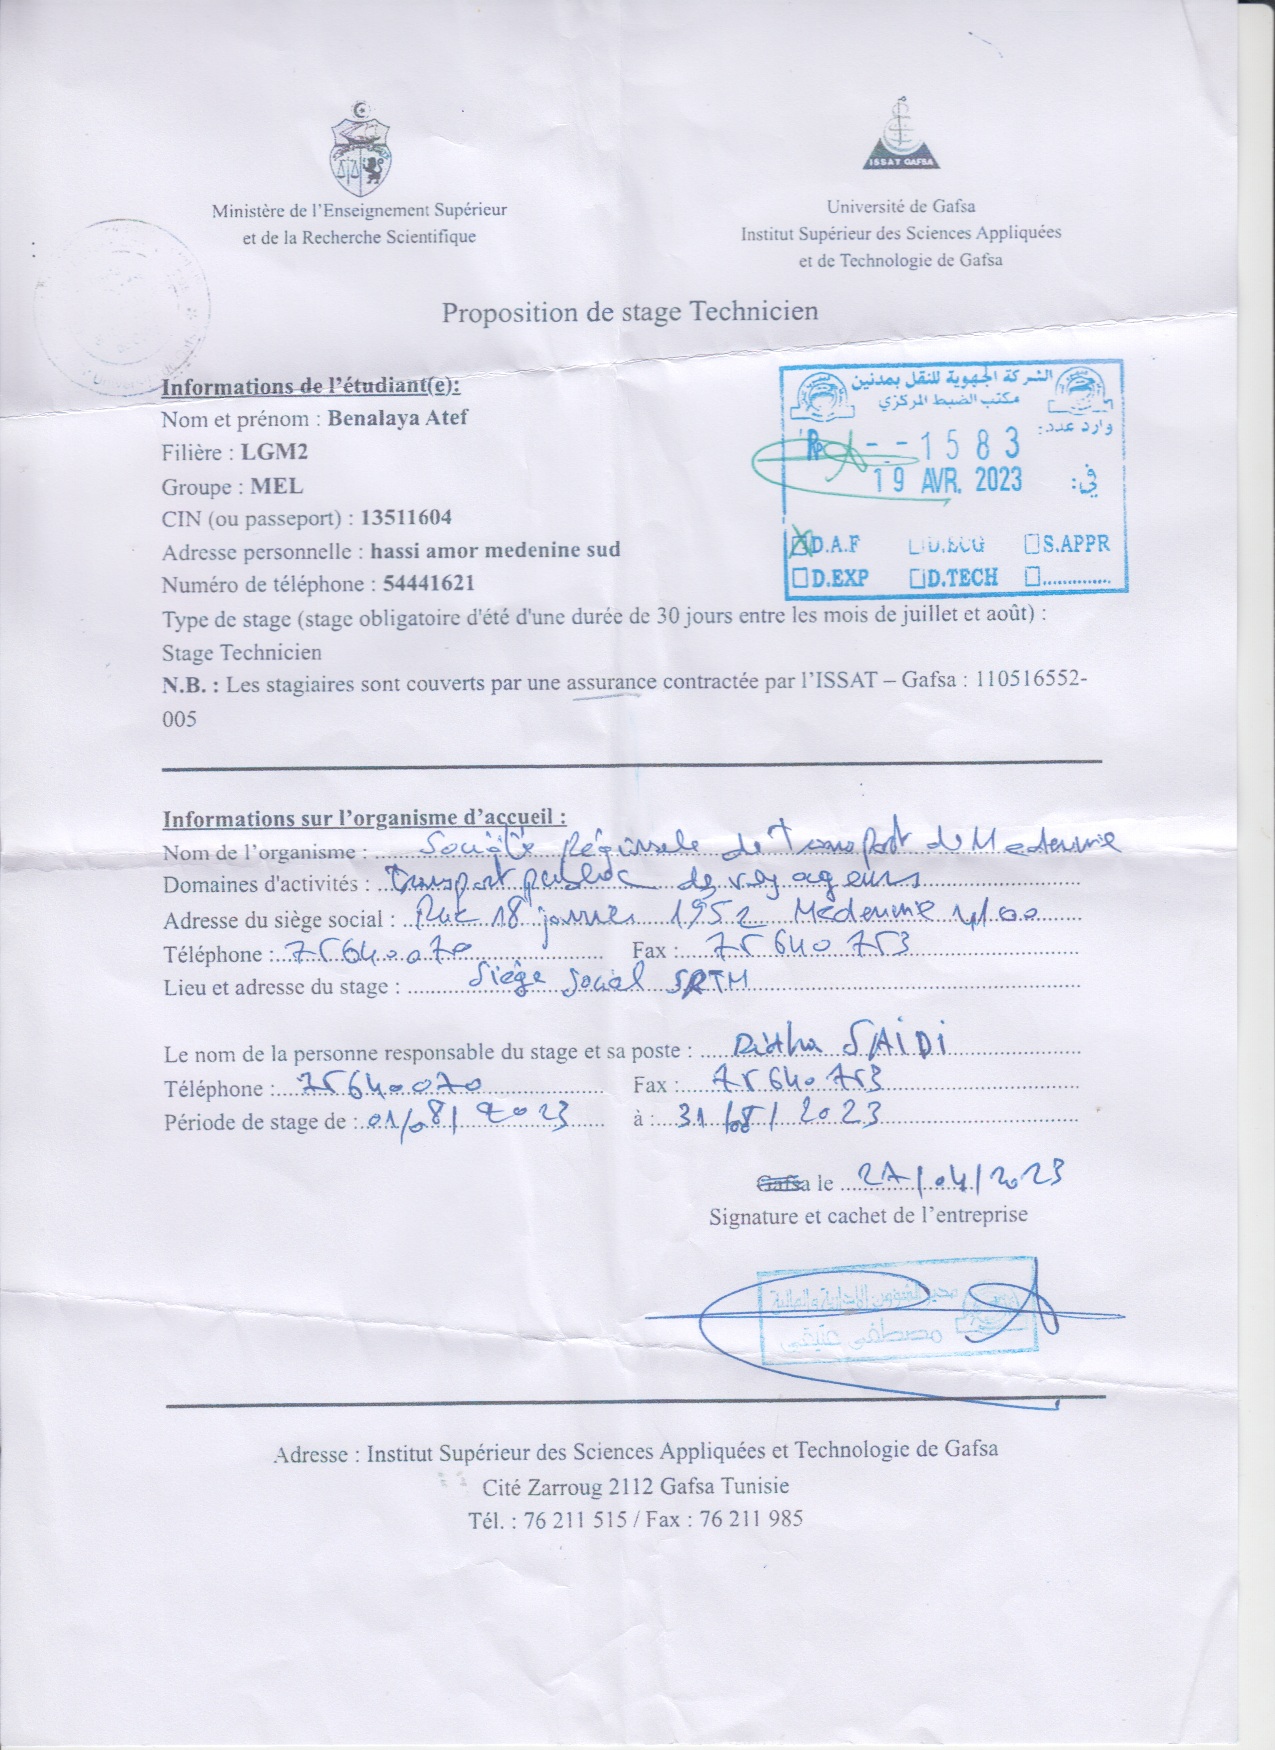 ISSAT GAFSA
Ministère de l'Enseignement Supérieur
et de la Recherche Scientifique
Université de Gafsa
Institut Supérieur des Sciences Appliquées
et de Technologie de Gafsa
Proposition de stage Technicien
الشركة الجهوية للنقل بمدنين
مكتب الضبط المركزي
وارد عدد:
--1583
في: 19 AVR. 2023
D.A.F D.ECG S.APPR
D.EXP D.TECH ..............
Informations de l'étudiant(e):
Nom et prénom : Benalaya Atef
Filière : LGM2
Groupe : MEL
CIN (ou passeport) : 13511604
Adresse personnelle : hassi amor medenine sud
Numéro de téléphone : 54441621
Type de stage (stage obligatoire d'été d'une durée de 30 jours entre les mois de juillet et août) :
Stage Technicien
N.B. : Les stagiaires sont couverts par une assurance contractée par l'ISSAT – Gafsa : 110516552-
005
Informations sur l'organisme d'accueil :
Nom de l'organisme : Société Régionale de Transport de Medenine
Domaines d'activités : Transport public de voyageurs
Adresse du siège social : Rue 18 janvier 1952 Medenine 4100
Téléphone : 75640070 Fax : 75 640 753
Lieu et adresse du stage : Siège Social SRTM
Le nom de la personne responsable du stage et sa poste : Ridha SAIDI
Téléphone : 75640070 Fax : 75 640 753
Période de stage de : 01/08/2023 à : 31/08/2023
Gafsa le 27/04/2023
Signature et cachet de l'entreprise
مدير الشؤون الإدارية والمالية
مصطفى عتيقي
Adresse : Institut Supérieur des Sciences Appliquées et Technologie de Gafsa
Cité Zarroug 2112 Gafsa Tunisie
Tél. : 76 211 515 / Fax : 76 211 985